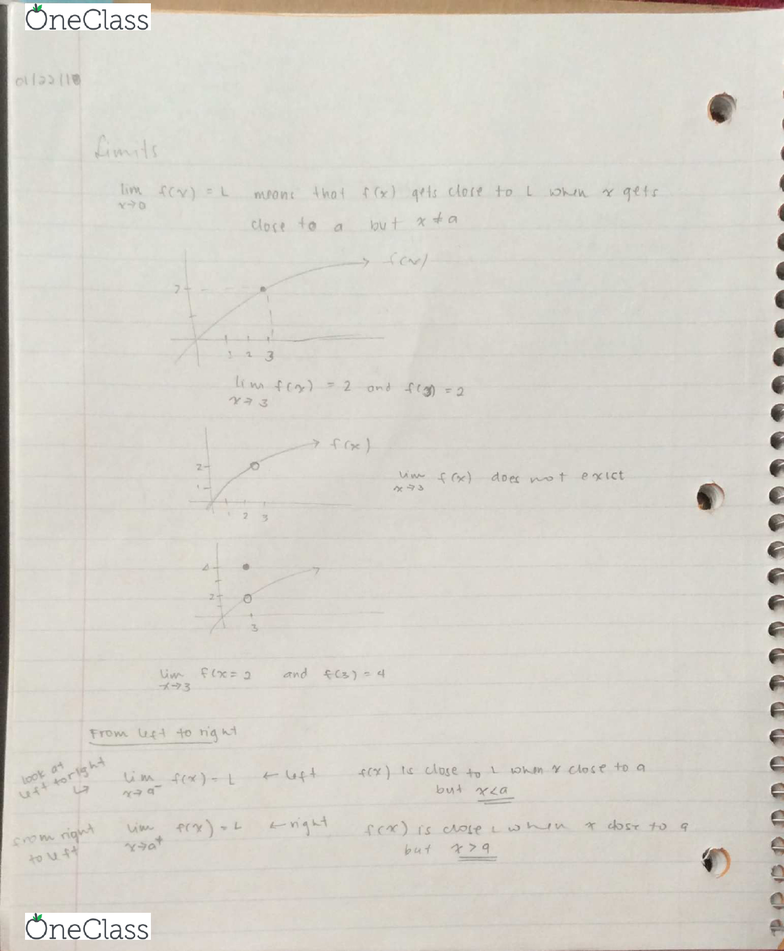 OneClass
01/22/18
Limits
lim f(x) = L means that f(x) gets close to L when x gets
x→a
close to a but x≠a
f(x)
2
1 2 3
lim f(x) = 2 and f(3) = 2
x→3
f(x)
2
1
1 2 3
lim f(x) does not exict
x→3
4
2
3
lim f(x = 2 and f(3) = 4
x→3
From left to right
look at
left to right
↳
lim f(x) = L ← left f(x) is close to L when x close to a
x→a⁻
but x<a
from right
to left
lim f(x) = L ← right f(x) is close L when x close to a
x→a⁺
but x>a
OneClass